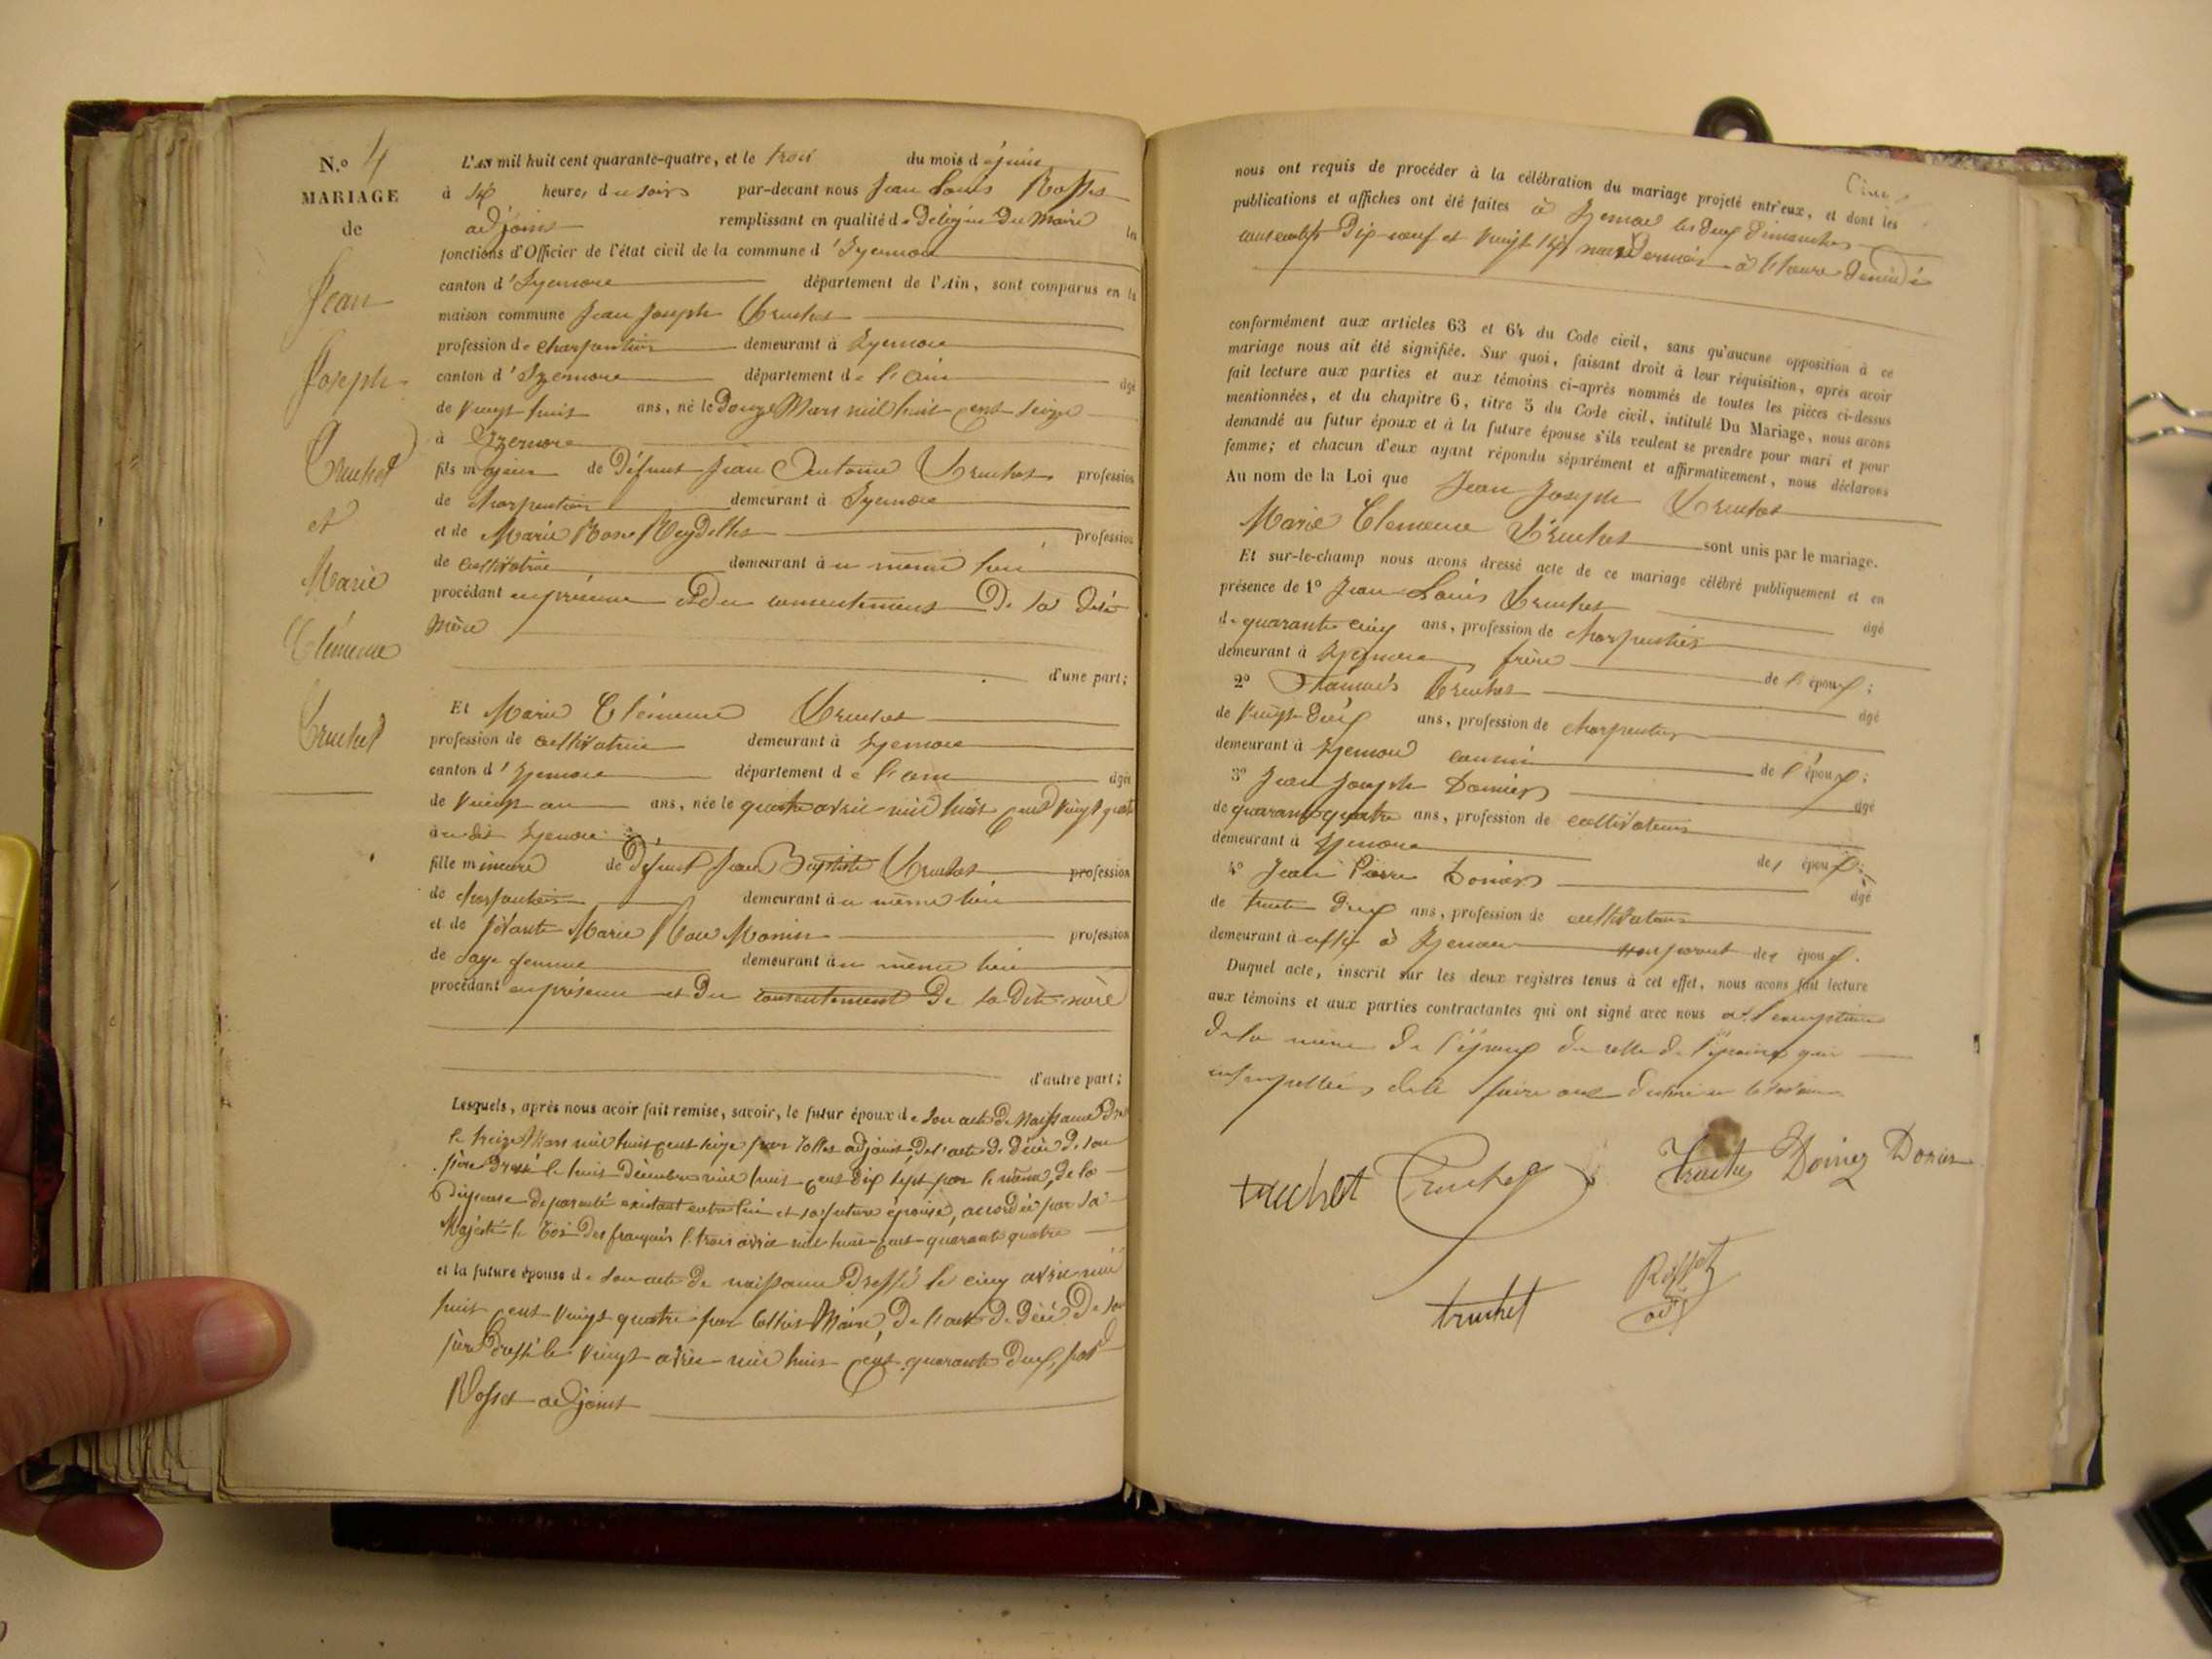 N.º 4
MARIAGE
de
Jean
Joseph
Truchet
et
Marie
Clémence
Truchet
L'AN mil huit cent quarante-quatre, et le trois du mois de juin
à sept heures du soir par-devant nous Jean Louis Rosset
adjoint remplissant en qualité de délégué du maire les
fonctions d'Officier de l'état civil de la commune d'Izernore
canton d'Izernore département de l'Ain, sont comparus en la
maison commune Jean Joseph Truchet
profession de charpentier demeurant à Izernore
canton d'Izernore département de l'ain âgé
de vingt huit ans, né le douze Mars mil huit cent seize
à Izernore
fils majeur de défunt Jean Antoine Truchet profession
de charpentier demeurant à Izernore
et de Marie Rose Reydellet profession
de cultivatrice demeurant au même lieu
procédant en présence et du consentement de la dite
mère
d'une part;
Et Marie Clémence Truchet
profession de cultivatrice demeurant à Izernore
canton d'Izernore département de l'ain âgée
de vingt ans, née le quatre avril mil huit cent vingt quatre
au dit Izernore
fille mineure de défunt Jean Baptiste Truchet profession
de charpentier demeurant au même lieu
et de vivante Marie Rose Monin profession
de sage femme demeurant au même lieu
procédant en présence et du consentement de la dite mère
d'autre part;
Lesquels, après nous avoir fait remise, savoir, le futur époux de son acte de naissance dressé
le treize Mars mil huit cent seize par adjoint, de l'acte de décès de son
père dressé le huit décembre mil huit cent dix sept par le même, de la
dispense de parenté existant entre lui et sa future épouse, accordée par sa
Majesté le Roi des français le trois avril mil huit cent quarante quatre
et la future épouse de son acte de naissance dressé le cinq avril mil
huit cent vingt quatre par Maire, de l'acte de décès de son
père dressé le vingt avril mil huit cent quarante deux, par
Rosset adjoint
nous ont requis de procéder à la célébration du mariage projeté entr'eux, et dont les
publications et affiches ont été faites à Izernore les deux dimanches
consécutifs dix neuf et vingt six mai dernier à l'heure de midi
conformément aux articles 63 et 64 du Code civil, sans qu'aucune opposition à ce
mariage nous ait été signifiée. Sur quoi, faisant droit à leur réquisition, après avoir
fait lecture aux parties et aux témoins ci-après nommés de toutes les pièces ci-dessus
mentionnées, et du chapitre 6, titre 5 du Code civil, intitulé Du Mariage, nous avons
demandé au futur époux et à la future épouse s'ils veulent se prendre pour mari et pour
femme; et chacun d'eux ayant répondu séparément et affirmativement, nous déclarons
Au nom de la Loi que Jean Joseph Truchet
Marie Clemence Truchet sont unis par le mariage.
Et sur-le-champ nous avons dressé acte de ce mariage célébré publiquement et en
présence de 1º Jean-Louis Truchet âgé
de quarante cinq ans, profession de charpentier
demeurant à Izernore frère de l'époux;
2º François Truchet âgé
de vingt-deux ans, profession de charpentier
demeurant à Izernore cousin de l'époux;
3º Jean Joseph Donier âgé
de quarante quatre ans, profession de cultivateur
demeurant à Izernore des époux;
4º Jean Pierre Donier âgé
de trente deux ans, profession de cultivateur
demeurant à Izernore non parent des époux.
Duquel acte, inscrit sur les deux registres tenus à cet effet, nous avons fait lecture
aux témoins et aux parties contractantes qui ont signé avec nous à l'exception
de la mère de l'époux de celle de l'épouse qui
interpellées de le faire ont déclaré ne le savoir
truchet Truchet Truchet Donier Donier
truchet Rosset
adj